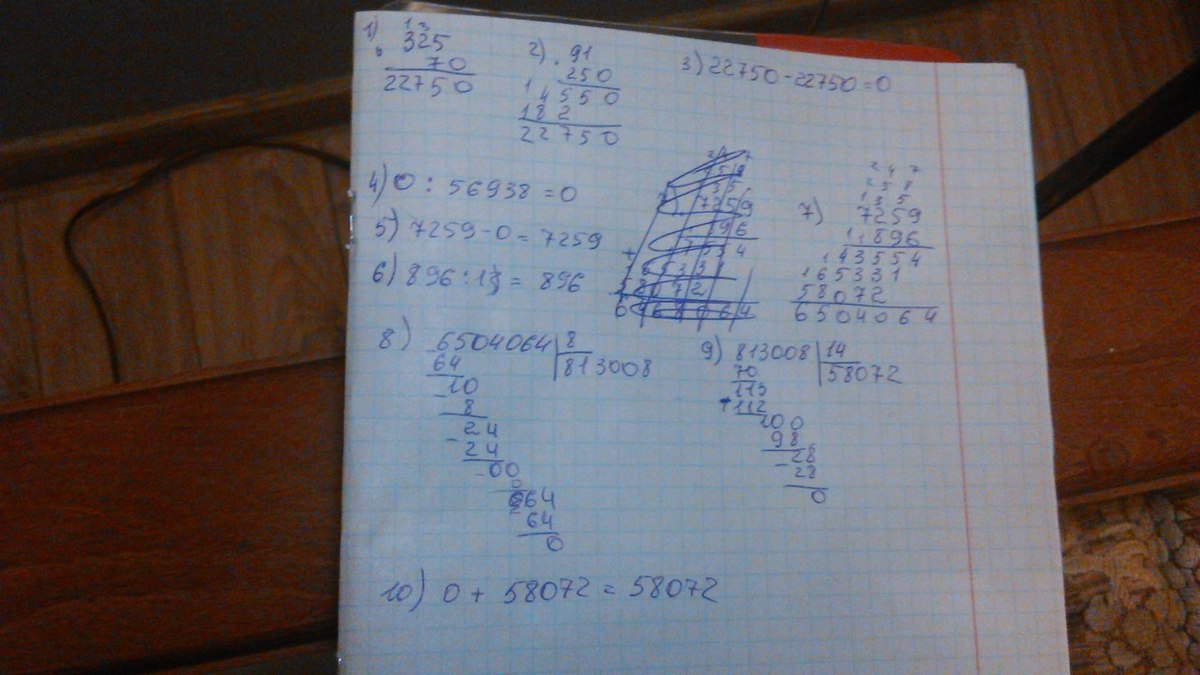 1) 325
70
22750
2) 91
250
4550
182
22750
3) 22750 - 22750 = 0
4) 0 : 56938 = 0
5) 7259 - 0 = 7259
6) 896 : 1 = 896
7) 7259
896
43554
65331
58072
6504064
8) 6504064 | 8
64 813008
10
8
24
24
00
0
64
64
0
9) 813008 | 14
70 58072
113
112
100
98
28
28
0
10) 0 + 58072 = 58072